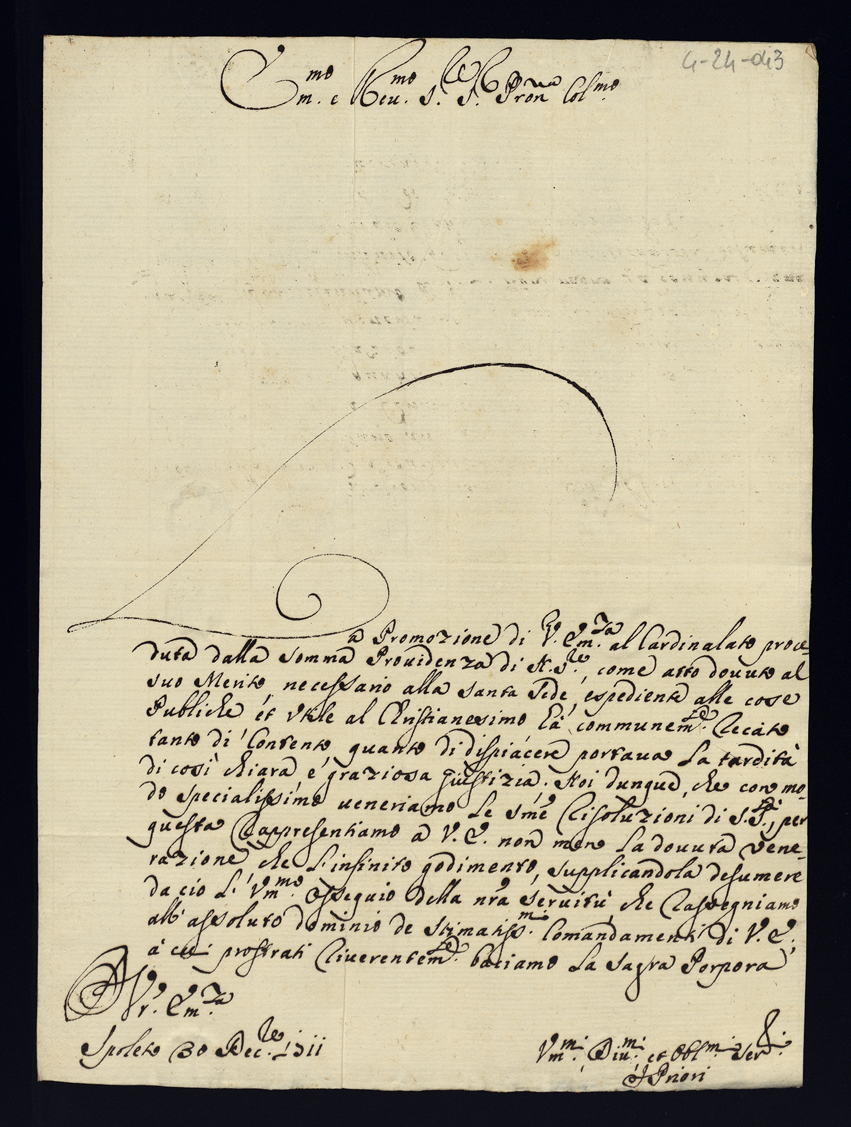 4-24-043
Em.mo e Reu.mo S.r S.r Pron Col.mo
La Promozione di V. Em.za al Cardinalato proce-
duta dalla somma Prouidenza di N. S.re, come atto douuto al
suo Merito, necessario alla Santa Sede, espediente alle cose
Publiche et Vtile al Christianesimo hà communem.te recato
tanto di Contento quanto di dispiacere portaua la tardità
di così chiara e graziosa giustizia. Noi dunque, che con mo-
do specialissimo ueneriamo le sme Risoluzioni di S. S.tà, per
questa rappresentiamo à V. E. non meno la douuta Vene-
razione che l'infinito godimento, supplicandola desumere
da ciò l'Vm.mo ossequio della nr̃a seruitù che rassegniamo
all'assoluto dominio de Stimatiss.mi Comandamenti di V. E.,
à cui prostrati riuerentem.te baciamo la Sagra Porpora
Di V.r Em.za
Spoleto 30 Dec.re 1711
Vm.mi Diu.mi et Obl.mi Ser.
I Priori